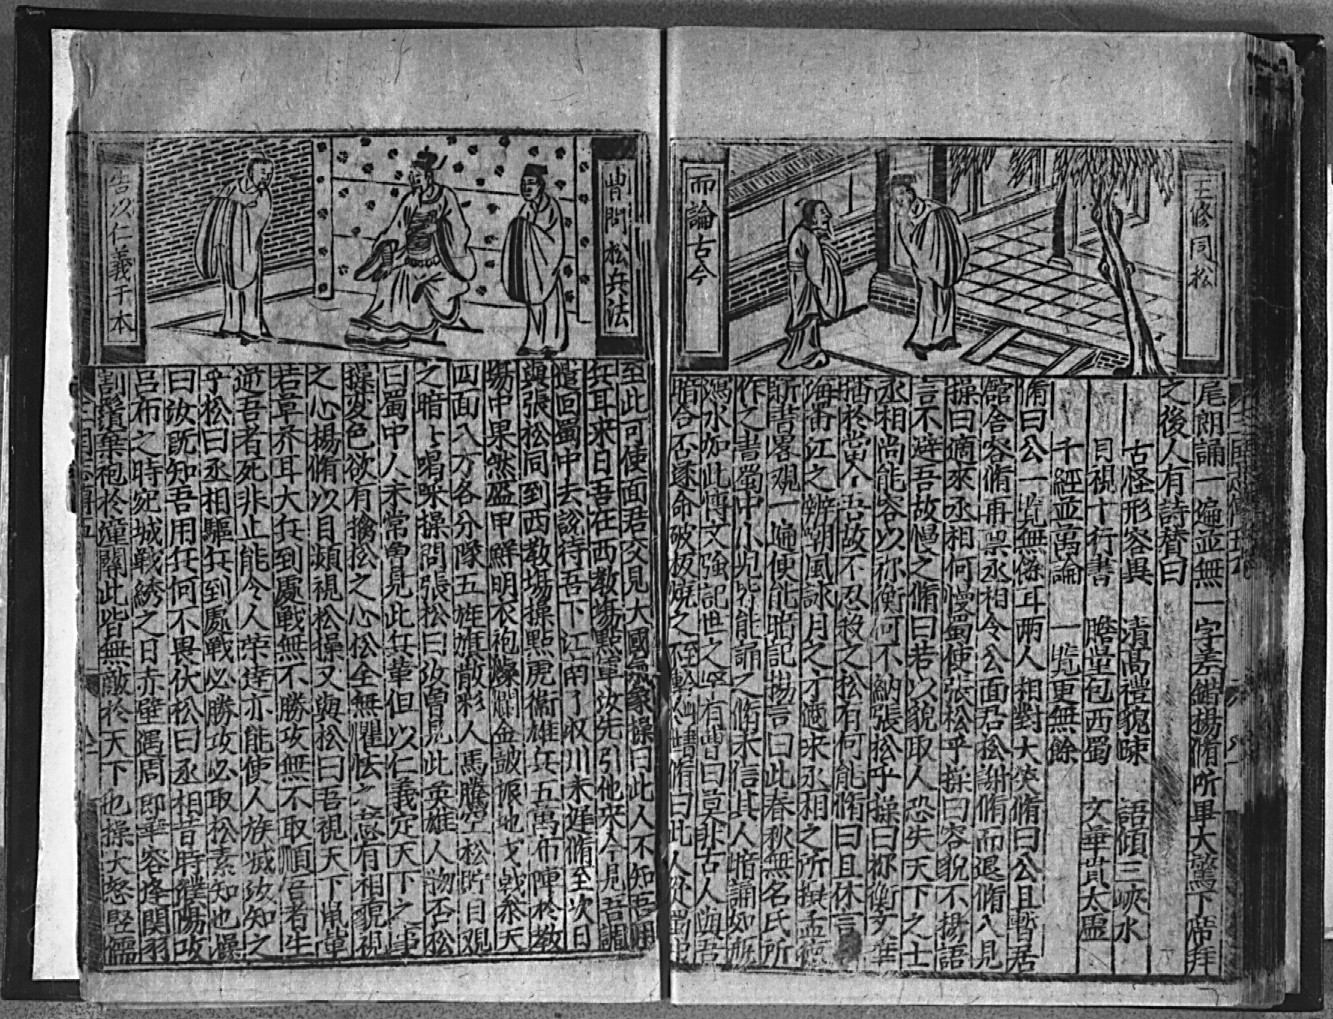 王修同松
而論古今
尾朗誦一遍並無一字差錯楊脩听畢大驚下席拜
之後人有詩賛曰
古怪形容異　清高禮貌疎　語傾三峽水
目視十行書　膽量包西蜀　文華貫太虛
千經並萬論　一覧更無餘
脩曰公一覧無餘耳兩人相對大笑脩曰公且暫居
館舍容脩再禀丞相令公面君松謝脩而退脩入見
操曰適來丞相何慢蜀使張松乎操曰容貌不揚語
言不遜吾故慢之脩曰若以貌取人恐失天下之士
丞相尚能容以祢衡何不納張松乎操曰祢衡文華
播於當今吾故不忍殺之松有何能脩曰且休言
海番江之辨嘲風詠月之才適來丞相之所撰孟德
新書畧观一遍便能暗記揚言曰此春秋無名氏所
作之書蜀中小児皆能誦之脩未信其人暗誦如
水如此博文強記世之罕有曹曰莫非古人與吾
暗合否遂命破板燒之 脩曰此人欲蜀
曹問松兵法
告以仁義于本
至此可使面君交見大國氣象操曰此人不知吾用
兵耳來日吾在西教塲點軍汝先引他來令見吾調
遣回蜀中去說待吾下江南了収川未遲脩至次日
與張松同到西教塲操點虎衛雄兵五萬布陣於教
塲中果然盔甲鮮明衣袍燦爛金皷振地戈戟參天
四面八方各分隊五旌旗散彩人馬騰空松貯目观
之暗〻喝咏操問張松曰汝曽見此英雄人物否松
曰蜀中人未常曽見此兵軰但以仁義定天下之事
操変色欲有擒松之心松全無懼怯之意有相貌視
之心楊脩以目頻視松操又與松曰吾視天下鼠軰
若草芥耳大兵到處戰無不勝攻無不取順吾者生
逆吾者死非止能令人荣達亦能使人族滅汝知之
乎松曰丞相驅兵到處戰必勝攻必取松素知也操
曰汝既知吾用兵何不畏伏松曰丞相昔時濮陽攻
吕布之時宛城戰綉之日赤壁遇周郎華容逢関羽
割鬚棄袍於潼關此皆無敵於天下也操大怒竪儒